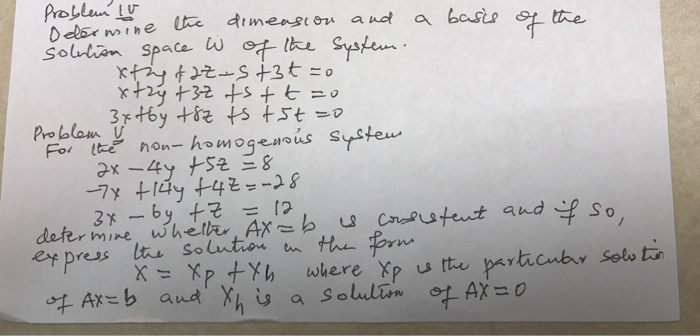 Problem IV
Determine the dimension and a basis of the
Solution space W of the System.
x+2y+2z-s+3t=0
x+2y+3z+s+t=0
3x+6y+8z+s+5t=0
Problem V
For the non-homogenous system
2x-4y+5z=8
-7x+14y+4z=-28
3x-6y+z=12
determine whether AX=b is consistent and if so,
express the solution in the form
X = Xp + Xh where Xp is the particular solution
of AX=b and Xh is a solution of AX=0